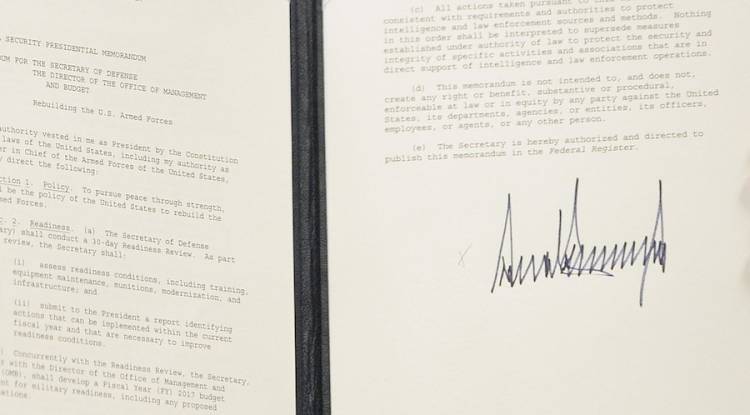 SECURITY PRESIDENTIAL MEMORANDUM
FOR THE SECRETARY OF DEFENSE
THE DIRECTOR OF THE OFFICE OF MANAGEMENT
AND BUDGET
Rebuilding the U.S. Armed Forces
authority vested in me as President by the Constitution
laws of the United States, including my authority as
in Chief of the Armed Forces of the United States,
direct the following:
1. Policy. To pursue peace through strength,
be the policy of the United States to rebuild the
Forces.
2. Readiness. (a) The Secretary of Defense
shall conduct a 30-day Readiness Review. As part
review, the Secretary shall:
(i) assess readiness conditions, including training,
equipment maintenance, munitions, modernization, and
infrastructure; and
(ii) submit to the President a report identifying
actions that can be implemented within the current
fiscal year and that are necessary to improve
readiness conditions.
Concurrently with the Readiness Review, the Secretary,
with the Director of the Office of Management and
(OMB), shall develop a Fiscal Year (FY) 2017 budget
for military readiness, including any proposed
(c) All actions taken pursuant to this
consistent with requirements and authorities to protect
intelligence and law enforcement sources and methods. Nothing
in this order shall be interpreted to supersede measures
established under authority of law to protect the security and
integrity of specific activities and associations that are in
direct support of intelligence and law enforcement operations.
(d) This memorandum is not intended to, and does not,
create any right or benefit, substantive or procedural,
enforceable at law or in equity by any party against the United
States, its departments, agencies, or entities, its officers,
employees, or agents, or any other person.
(e) The Secretary is hereby authorized and directed to
publish this memorandum in the Federal Register.